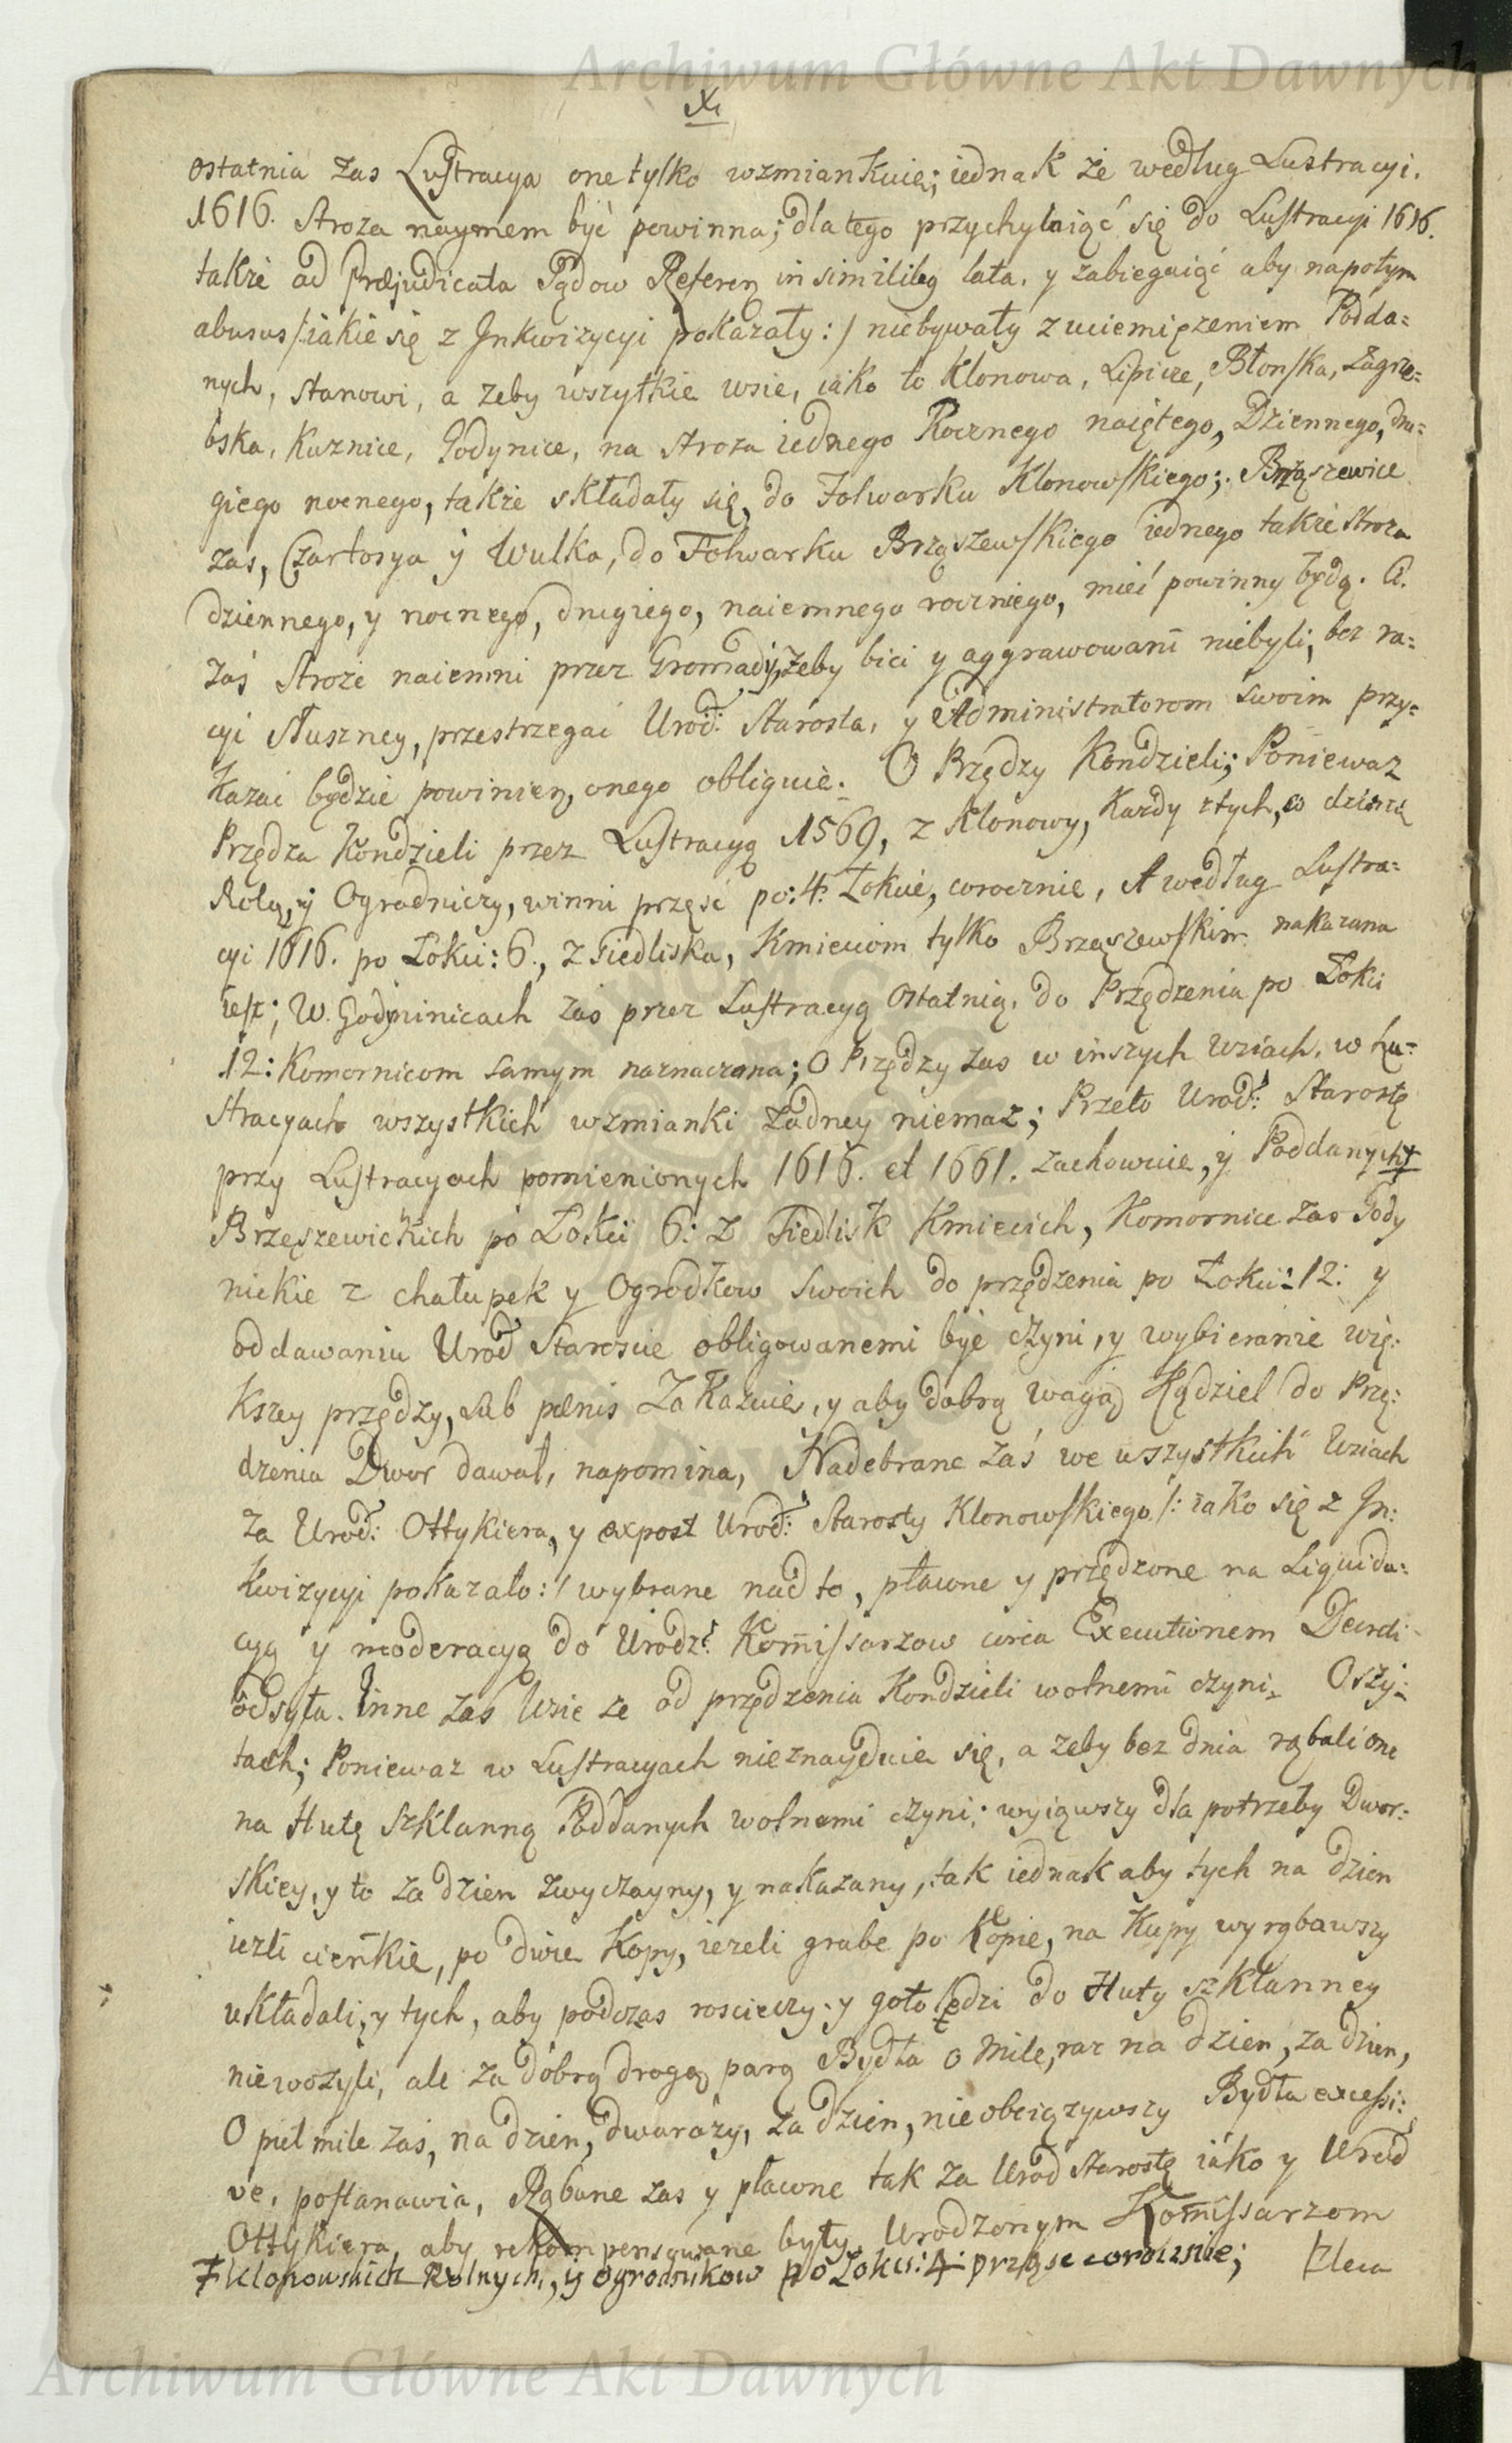 Archiwum Główne Akt Dawnych
X.
ostatnia zas Lustracya one tylko wzmiankuie; iednak że według Lustracyi.
1616. Stroza naymem być powinna; dlatego przychylaiąć się do Lustracyi 1616.
także ad Præjudicata Sądow Referen in similibq lata, y zabiegaiąć aby napotym
abusus /:iakie się z Jnkwizycyi pokazały:/ niebywały z uciemięzeniem Podda=
nych, stanowi, a zeby wszytkie wsie, iako to Klonowa, Lipicze, Błonska, Zagrze=
bska, Kuznice, Godynice, na Stroza iednego Rocznego naiętego, Dziennego, dru=
giego nocnego, także składały się, do Folwarku Klonowskiego; Brząszewice
zas, Czartorya y Wulka, do Folwarku Brząszewskiego iednego także Stroza
dziennego, y nocnego, drugiego, naiemnego roczniego, mieć powinny będą. A.
zaś Stroże naiemni przez Gromady, żeby bici y aggrawowani niebyli, bez ra=
cyi słuszney, przestrzegać Urodz: Starosta, y Administratorom swoim przy=
kazać będzie powinien, onego obliguie. O Przędzy Kondzieli; Poniewaz
Przędza Kondzieli przez Lustracyą 1569, z Klonowy, Kazdy z tych, co dzierzą
Rolą, y Ogrodniczy, winni prząść po: 4. Łokcie, corocznie, A według Lustra=
cyi 1616. po Łokci: 6., z Siedliska, Kmieciom tylko Brząszewskim nakazana
iest; W. Godynicach zaś przez Lustracyą Ostatnią, do Przędzenia po Łokci
12: Komornicom samym naznaczona; O Przędzy zas w inszych Wsiach, w Lu=
stracyach wszystkich wzmianki żadney niemasz; Przeto Urodz: Starostę
przy Lustracyach pomienionych 1616. et 1661. zachowuie, y Poddanych ⸸
Brzęszewickich po Łokci 6: z Siedlisk Kmiecich, Komornice zas Gody
nickie z chałupek y Ogrodkow swoich do przędzenia po Łokci: 12: y
oddawaniu Urodz Staroscie obligowanemi być czyni, y wybieranie wię:
kszey przędzy, sub pœnis zakazuie, y aby dobrą wagą Kądziel do Przę:
dzenia Dwor dawał, napomina, Nadebrane zaś we wszystkich Wsiach
za Urodz: Ottykiera, y expost Urodz: Starosty Klonowskiego /: iako się z Jn:
kwizycyi pokazało:/ wybrane nad to, pławne y przędzone na Liquida=
cyą y moderacyą do Urodz: Kommissarzow circa Executionem Decreti
odsyła. Inne zas Wsie ze od przędzenia Kondzieli wolnemi czyni. O szy=
tach; Poniewaz w Lustracyach nieznayduie się, a zeby bez dnia rąbali one
na Hutę szklanną Poddanych wolnemi czyni; wyiąwszy dla potrzeby Dwor=
skiey, y to za dzien zwyczayny, y nakazany, tak iednak aby tych na dzien
iezli cieńkie, po dwie Kopy, iezeli grube po Kopie, na Kupy wyrąbawszy
układali, y tych, aby podczas roscieczy y gołoledzi do Huty szklanney
niewozyli, ale za dobrą drogą parą Bydła o mile, raz na dzien, za dzien,
O puł mile zaś, na dzien, dwa razy, za dzien, nieobciązywszy Bydła excessi:
ve, postanawia, Rąbane zas y pławne tak za Urodz Starostę iako y Urodz
Ottykiera, aby rekompensowane były, Urodzonym Kommissarzom
⸸ Klonowskich Rolnych, y ogrodnikow po Łokci: 4 prząsc corocznie; zleca
Archiwum Główne Akt Dawnych